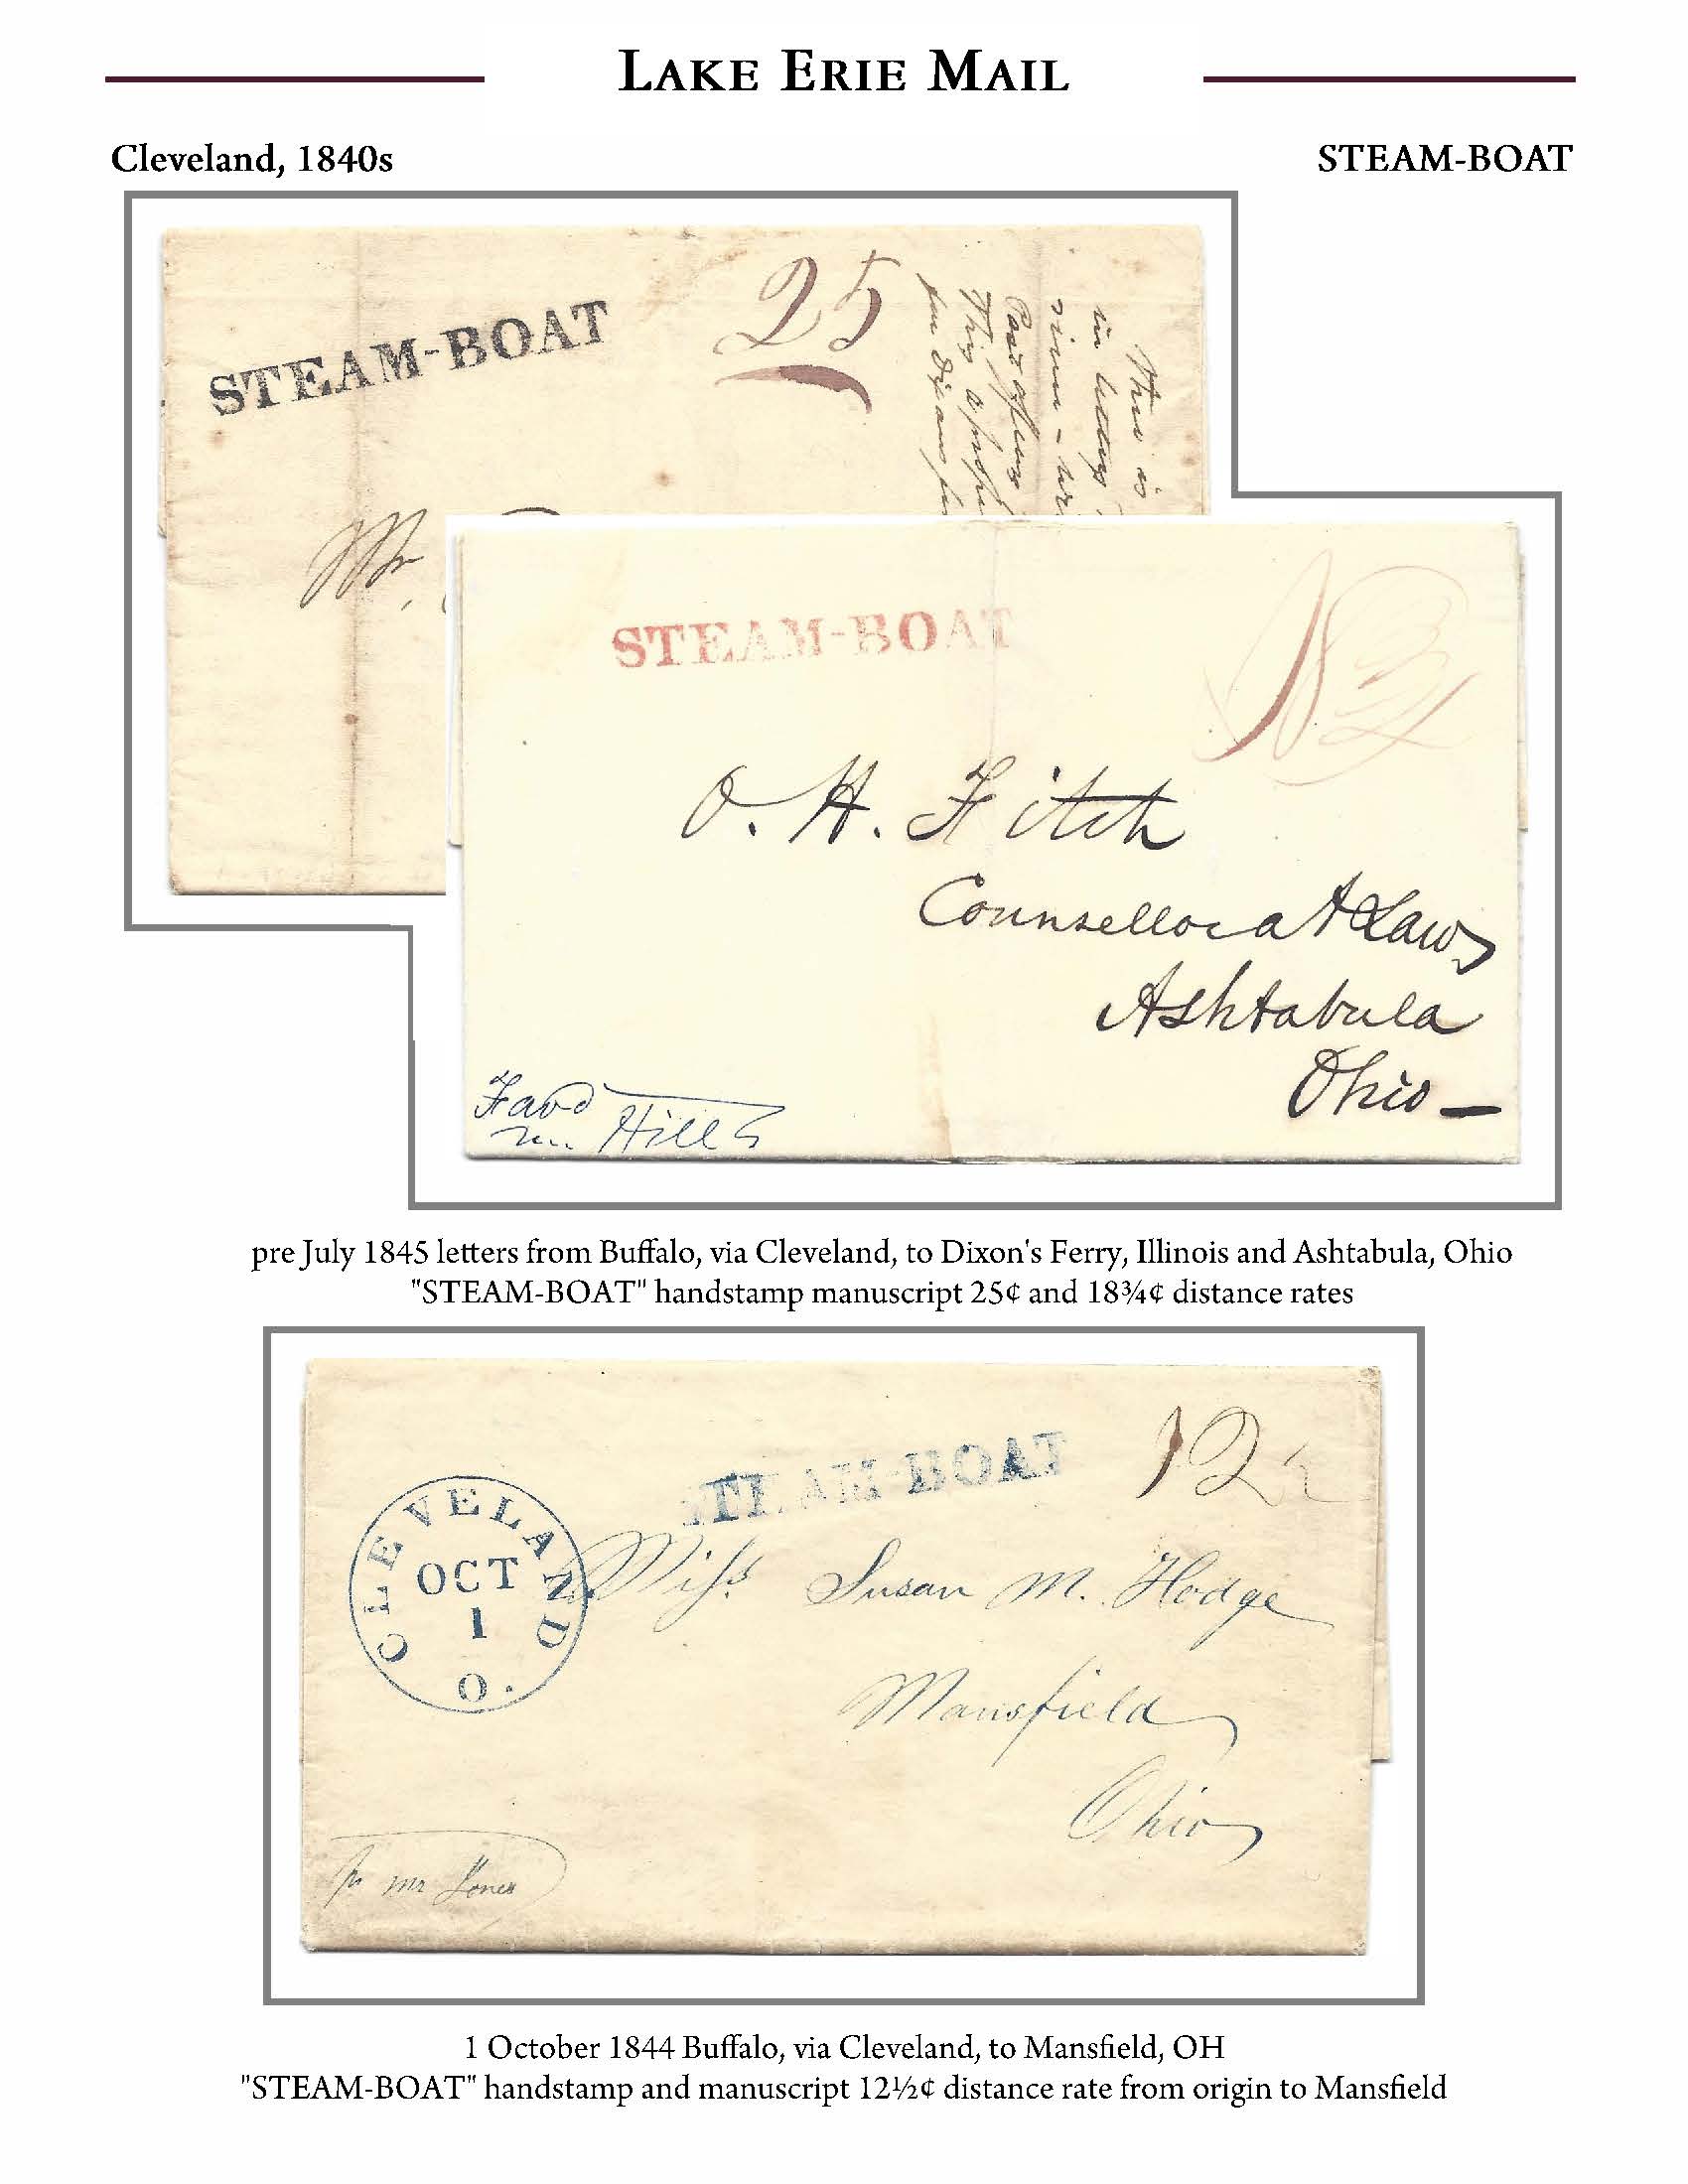 LAKE ERIE MAIL
Cleveland, 1840s
STEAM-BOAT
STEAM-BOAT
25
This is
in
Post office
Mr.
STEAM-BOAT
18¾
O. H. Fitch
Counsellor at Law
Ashtabula
Ohio
Favd
Hills
pre July 1845 letters from Buffalo, via Cleveland, to Dixon's Ferry, Illinois and Ashtabula, Ohio
"STEAM-BOAT" handstamp manuscript 25¢ and 18¾¢ distance rates
CLEVELAND O.
OCT
1
STEAM-BOAT
12½
Miss Susan M. Hodge
Mansfield
Ohio
pr mr Jones
1 October 1844 Buffalo, via Cleveland, to Mansfield, OH
"STEAM-BOAT" handstamp and manuscript 12½¢ distance rate from origin to Mansfield